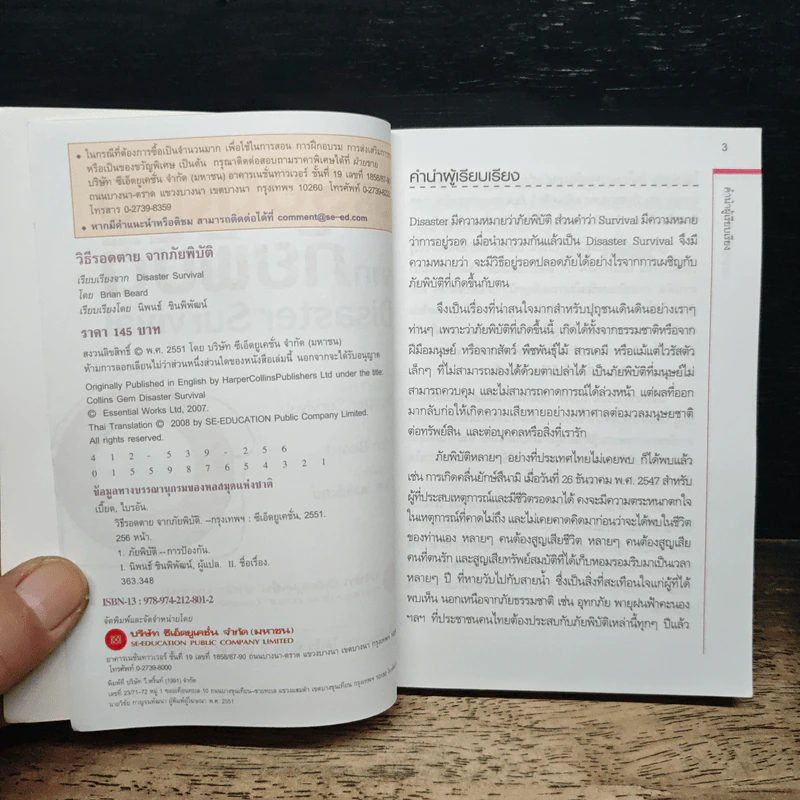 • ในกรณีที่ต้องการซื้อเป็นจำนวนมาก เพื่อใช้ในการสอน การฝึกอบรม การส่งเสริมการ
หรือเป็นของขวัญพิเศษ เป็นต้น กรุณาติดต่อสอบถามราคาพิเศษได้ที่ ฝ่ายขาย
บริษัท ซีเอ็ดยูเคชั่น จำกัด (มหาชน) อาคารเนชั่นทาวเวอร์ ชั้นที่ 19 เลขที่ 1858/87
ถนนบางนา-ตราด แขวงบางนา เขตบางนา กรุงเทพฯ 10260 โทรศัพท์ 0-2739-8222
โทรสาร 0-2739-8359
• หากมีคำแนะนำหรือติชม สามารถติดต่อได้ที่ comment@se-ed.com
วิธีรอดตาย จากภัยพิบัติ
เรียบเรียงจาก Disaster Survival
โดย Brian Beard
เรียบเรียงโดย นิพนธ์ ชินพิพัฒน์
ราคา 145 บาท
สงวนลิขสิทธิ์ © พ.ศ. 2551 โดย บริษัท ซีเอ็ดยูเคชั่น จำกัด (มหาชน)
ห้ามการลอกเลียนไม่ว่าส่วนหนึ่งส่วนใดของหนังสือเล่มนี้ นอกจากจะได้รับอนุญาต
Originally Published in English by HarperCollinsPublishers Ltd under the title:
Collins Gem Disaster Survival
© Essential Works Ltd, 2007.
Thai Translation © 2008 by SE-EDUCATION Public Company Limited.
All rights reserved.
4 1 2 - 5 3 9 - 2 5 6
0 1 5 5 9 8 7 6 5 4 3 2 1
ข้อมูลทางบรรณานุกรมของหอสมุดแห่งชาติ
เบี๊ยด, ไบรอัน.
วิธีรอดตาย จากภัยพิบัติ. --กรุงเทพฯ : ซีเอ็ดยูเคชั่น, 2551.
256 หน้า.
1. ภัยพิบัติ -- การป้องกัน.
I. นิพนธ์ ชินพิพัฒน์, ผู้แปล. II. ชื่อเรื่อง.
363.348
ISBN-13 : 978-974-212-801-2
จัดพิมพ์และจัดจำหน่ายโดย
บริษัท ซีเอ็ดยูเคชั่น จำกัด (มหาชน)
SE-EDUCATION PUBLIC COMPANY LIMITED
อาคารเนชั่นทาวเวอร์ ชั้นที่ 19 เลขที่ 1858/87-90 ถนนบางนา-ตราด แขวงบางนา เขตบางนา กรุงเทพฯ
โทรศัพท์ 0-2739-8000
พิมพ์ที่ บริษัท วี.พริ้นท์ (1991) จำกัด
เลขที่ 23/71-72 หมู่ 1 ซอยเทียนทะเล 10 ถนนบางขุนเทียน-ชายทะเล แขวงแสมดำ เขตบางขุนเทียน กรุงเทพฯ
นายวิชัย กาญจนพัฒนา ผู้พิมพ์ผู้โฆษณา พ.ศ. 2551
3
คำนำผู้เรียบเรียง
คำนำผู้เรียบเรียง
Disaster มีความหมายว่าภัยพิบัติ ส่วนคำว่า Survival มีความหมาย
ว่าการอยู่รอด เมื่อนำมารวมกันแล้วเป็น Disaster Survival จึงมี
ความหมายว่า จะมีวิธีอยู่รอดปลอดภัยได้อย่างไรจากการเผชิญกับ
ภัยพิบัติที่เกิดขึ้นกับตน
จึงเป็นเรื่องที่น่าสนใจมากสำหรับปุถุชนเดินดินอย่างเราๆ
ท่านๆ เพราะว่าภัยพิบัติที่เกิดขึ้นนี้ เกิดได้ทั้งจากธรรมชาติหรือจาก
ฝีมือมนุษย์ หรือจากสัตว์ พืชพันธุ์ไม้ สารเคมี หรือแม้แต่ไวรัสตัว
เล็กๆ ที่ไม่สามารถมองได้ด้วยตาเปล่าได้ เป็นภัยพิบัติที่มนุษย์ไม่
สามารถควบคุม และไม่สามารถคาดการณ์ได้ล่วงหน้า แต่ผลที่ออก
มากลับก่อให้เกิดความเสียหายอย่างมหาศาลต่อมวลมนุษยชาติ
ต่อทรัพย์สิน และต่อบุคคลหรือสิ่งที่เรารัก
ภัยพิบัติหลายๆ อย่างที่ประเทศไทยไม่เคยพบ ก็ได้พบแล้ว
เช่น การเกิดคลื่นยักษ์สึนามิ เมื่อวันที่ 26 ธันวาคม พ.ศ. 2547 สำหรับ
ผู้ที่ประสบเหตุการณ์และมีชีวิตรอดมาได้ คงจะมีความตระหนกตกใจ
ในเหตุการณ์ที่คาดไม่ถึง และไม่เคยคาดคิดมาก่อนว่าจะได้พบในชีวิต
ของท่านเอง หลายๆ คนต้องสูญเสียชีวิต หลายๆ คนต้องสูญเสีย
คนที่ตนรัก และสูญเสียทรัพย์สมบัติที่ได้เก็บหอมรอมริบมาเป็นเวลา
หลายๆ ปี ที่หายวับไปกับสายน้ำ ซึ่งเป็นสิ่งที่สะเทือนใจแก่ผู้ที่ได้
พบเห็น นอกเหนือจากภัยธรรมชาติ เช่น อุทกภัย พายุฝนฟ้าคะนอง
ฯลฯ ที่ประชาชนคนไทยต้องประสบกับภัยพิบัติเหล่านี้ทุกๆ ปีแล้ว